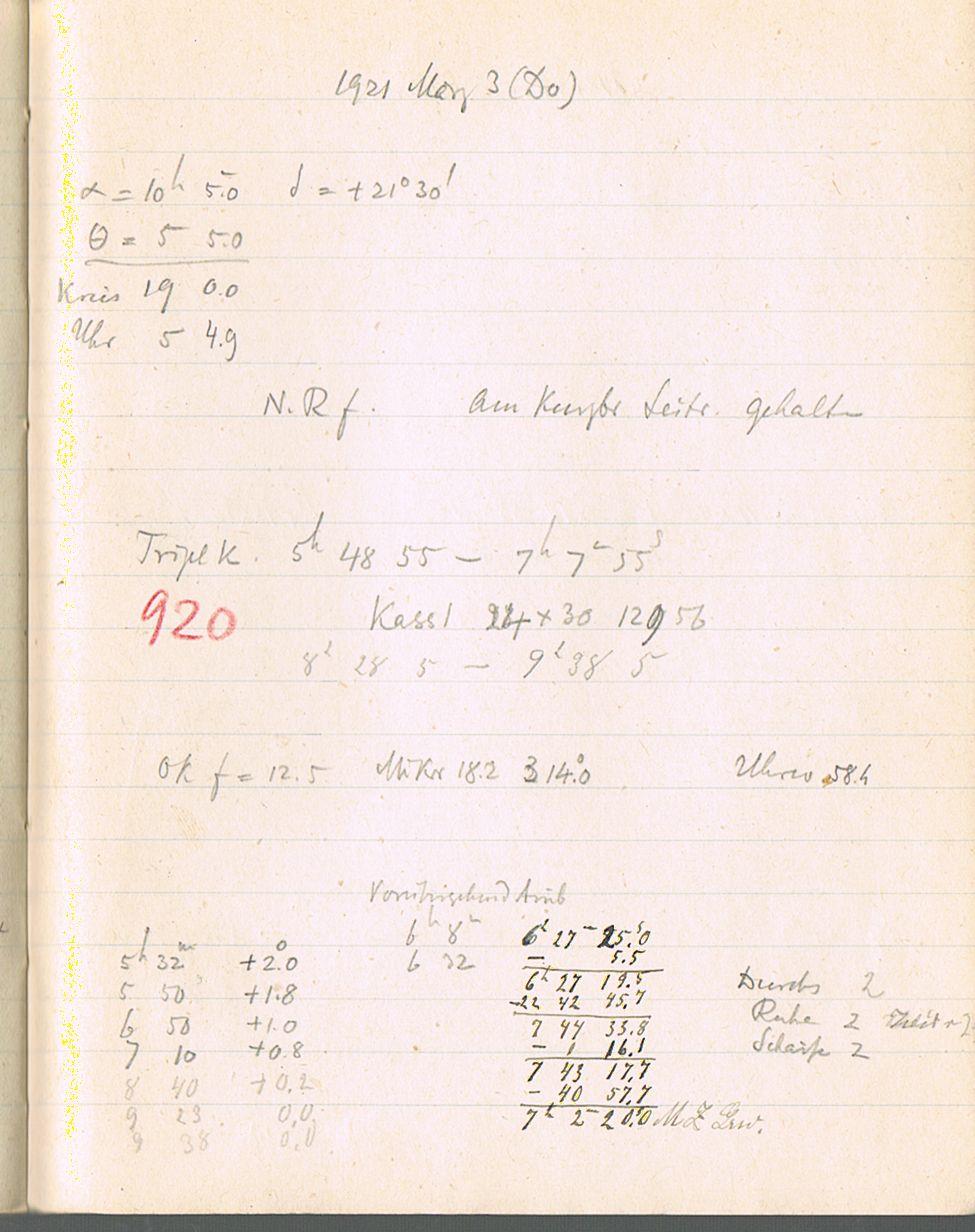 1921 März 3 (Do)
α = 10h 5m.0 δ = +21° 30'
θ = 5 5.0
Kreis 19 0.0
Uhr 5 4.9
N. R f. Am gehalten
Triplek. 5h 48 55 – 7h 7m 55s
920 Kass 1 24 × 30 12 9 56
8h 28 5 – 9h 38 5
Ok f = 12.5 Mikr 18.2 314.0° Uhrw 58.4
Vorübergehend trüb
6h 8m
6 32
5h 32m +2.0°
5 50 +1.8
6 50 +1.0
7 10 +0.8
8 40 +0.2
9 23 0.0
9 38 0.0
6h 27m 25s.0
– 5.5
6h 27 19.5
–22 42 45.7
7 44 33.8
– 1 16.1
7 43 17.7
– 40 57.7
7h 2m 20s.0 M Z Grw.
Durchs 2
Ruhe 2
Schärfe 2